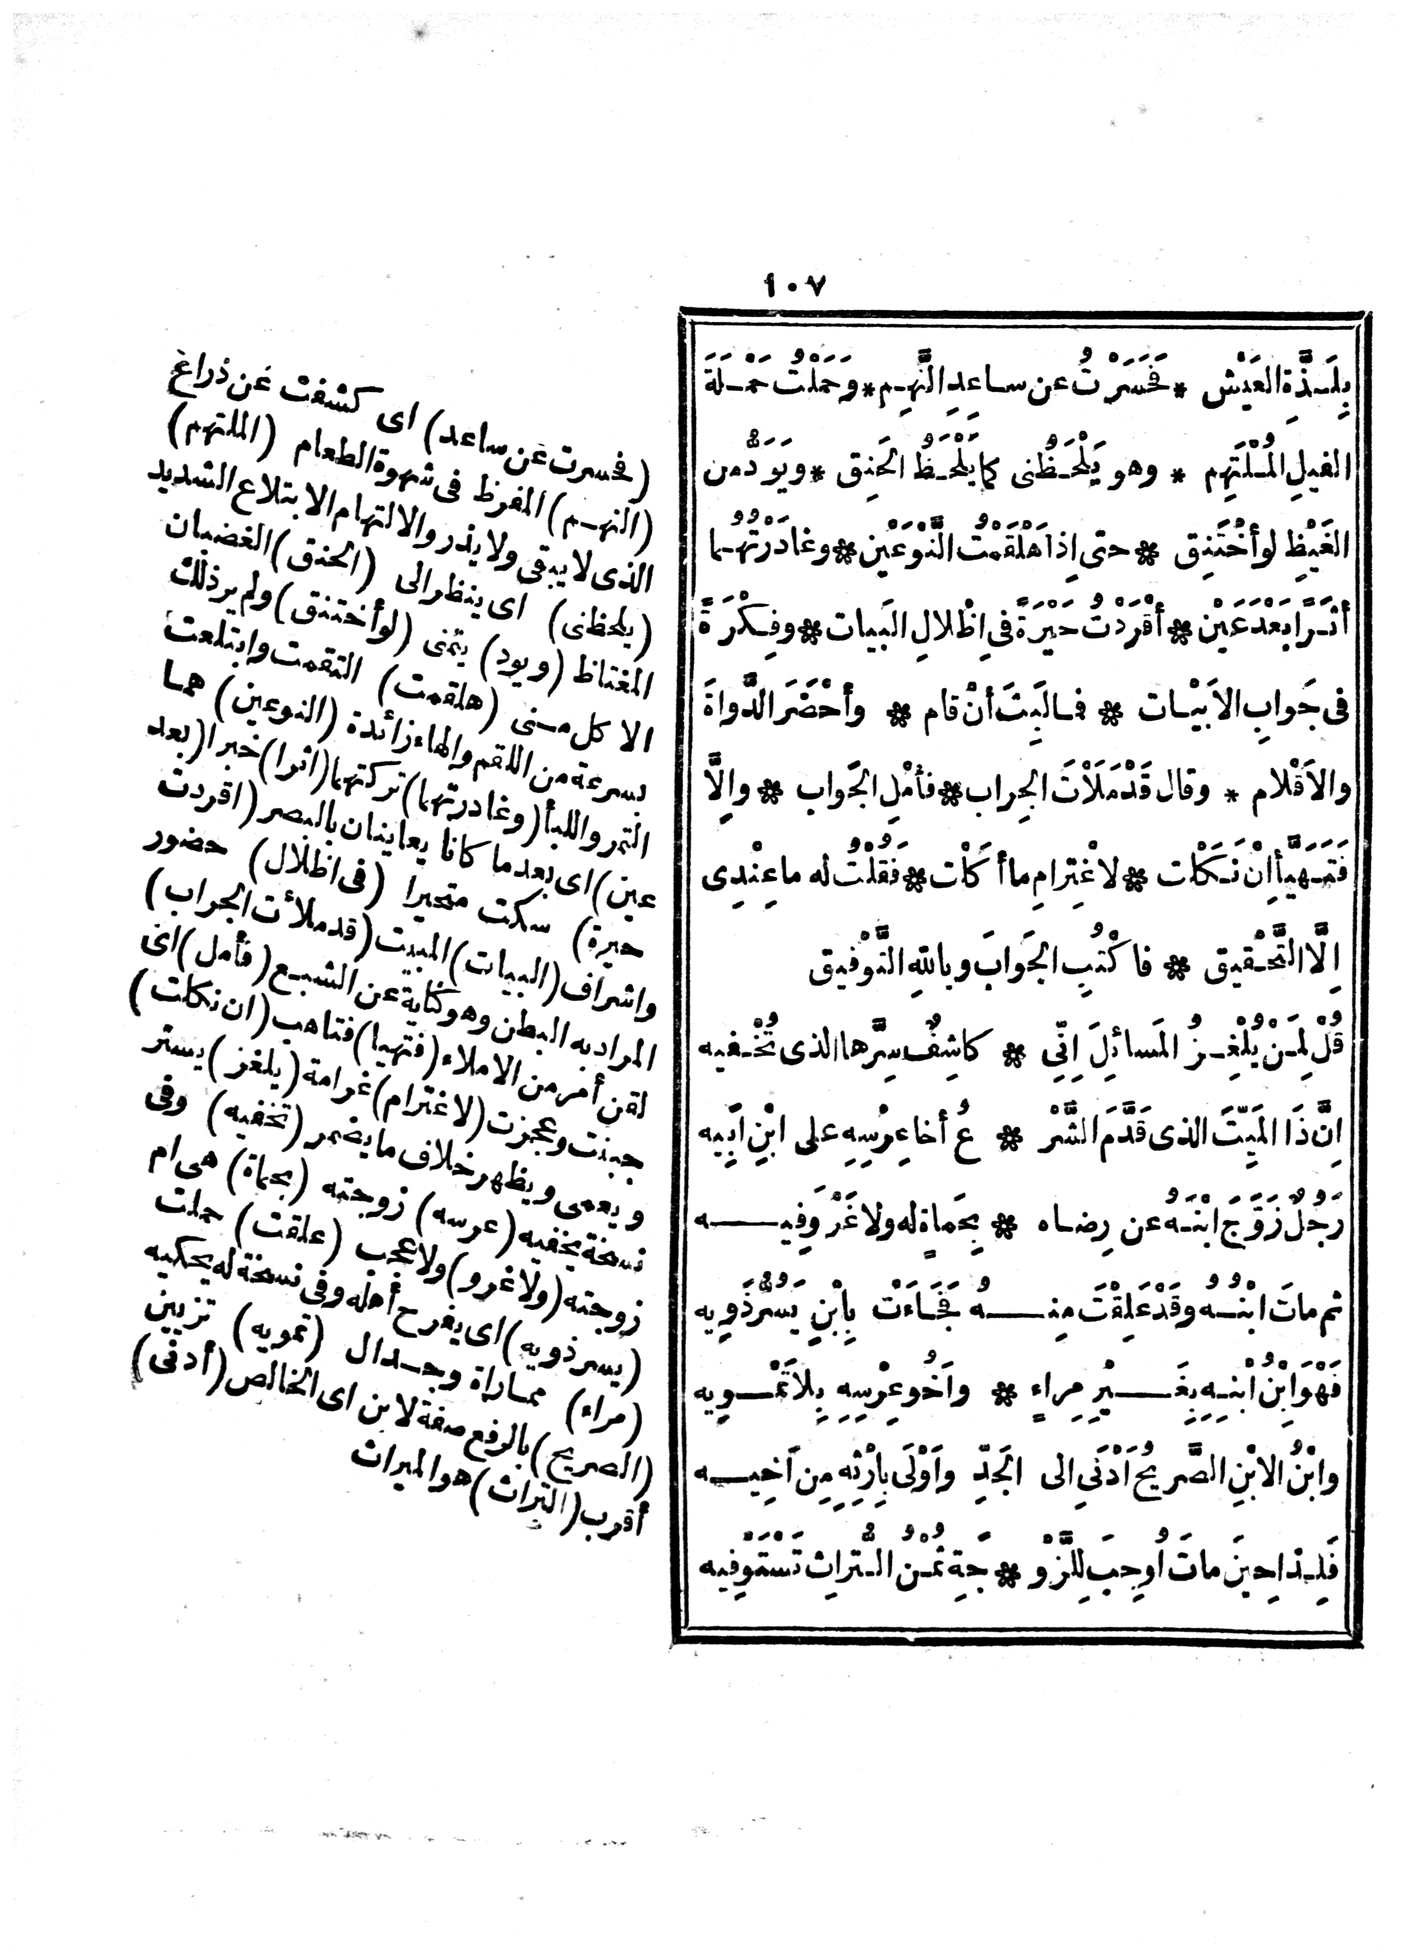 ١٠٧
بِلَذَّةِ العَيْش * فَحَسَرْتُ عن ساعِدِ النَّهِم * وَحَمَلْتُ حَمْلَةَ
الفيلِ المُلْتَهِم * وهو يَلْحَظُنى كما يَلْحَظُ الحَنِق * ويَوَدُّ من
الغَيْظِ لو أخْتَنِق * حتى اِذا هَلْقَمْتُ النَّوْعَيْن * وغادَرْتُهُما
أثَرًا بَعْدَ عَيْن * أقْرَدْتُ حَيْرَةً فى اِظْلالِ البَيات * وفِكْرَةً
فى جَوابِ الاَبْيات * فما لَبِثَ أنْ قام * وأحْضَرَ الدَّواةَ
والاَقْلام * وقال قَدْ مَلَأْتَ الجِراب * فأمْلِ الجَواب * واِلَّا
فَتَهَيَّأْ اِنْ نَكَلْت * لاغْتِرامِ ما أكَلْت * فَقُلْتُ له ما عِنْدِى
اِلَّا التَّحْقيق * فاكْتُبِ الجَوابَ وبالله التَّوْفيق
قُلْ لِمَنْ يُلْغِزُ المَسائِلَ اِنِّى * كاشِفٌ سِرَّها الذى تُخْفيه
اِنَّ ذَا المَيِّتَ الذى قَدَّمَ الشَّرْ * عُ أخا عِرْسِهِ على ابْنِ اَبِيه
رَجُلٌ زَوَّجَ ابْنَهُ عن رِضاه * بِحَماةٍ له ولا غَرْوَ فِيه
ثم ماتَ ابْنُهُ وقَدْ عَلِقَتْ مِنهُ فَجَاءَتْ بِاْبْنٍ يَسُرُّ ذَوِيه
فَهْوَ ابْنُ ابْنِهِ بِغَيْرِ مِراءٍ * واَخُو عِرْسِهِ بِلاَ تَمْوِيه
وابْنُ الابْنِ الصَّريحُ اَدْنَى الى الجَدِّ واَوْلَى بِاِرْثِهِ مِن اَخِيه
فَلِذا حِينَ ماتَ اُوجِبَ لِلزَّوْ * جَةِ ثُمْنُ التُّراثِ تَسْتَوْفِيه
(فحسرت عن ساعد) اى كشفت عن ذراع
(النهم) المفرط فى شهوة الطعام (الملتهم)
الذى لا يبقى ولا يذر والالتهام الابتلاع الشديد
(يلحظنى) اى ينظر الى (الحنق) الغضبان
المغتاظ (ويود) يتمنى (لو أختنق) ولم يرذلك
الاكل منى (هلقمت) التقمت وابتلعت
بسرعة من اللقم والهاء زائدة (النوعين) هما
التمر واللبأ (وغادرتهما) تركتهما (اثرا) خبرا (بعد
عين) اى بعد ما كانا يعاينان بالبصر (اقردت
حيرة) سكت متحيرا (فى اظلال) حضور
واشراف (البيات) المبيت (قد ملأت الجراب)
المراد به البطن وهو كناية عن الشبع (فأمل) اى
لقن أمر من الاملاء (فتهيا) فتاهب (ان نكلت)
جبنت وعجزت (لاغترام) غرامة (يلغز) يستر
ويعمى ويظهر خلاف ما يضمر (تخفيه) وفى
نسخة يخفيه (عرسه) زوجته (بحماة) هى ام
زوجته (ولا غرو) ولا عجب (علقت) حملت
(يسر ذويه) اى يفرح أهله وفى نسخة له يحكيه
(مراء) مماراة وجدال (تمويه) تزيين
(الصريح) بالرفع صفة لابن اى الخالص (أدنى)
أقرب (التراث) هو الميراث